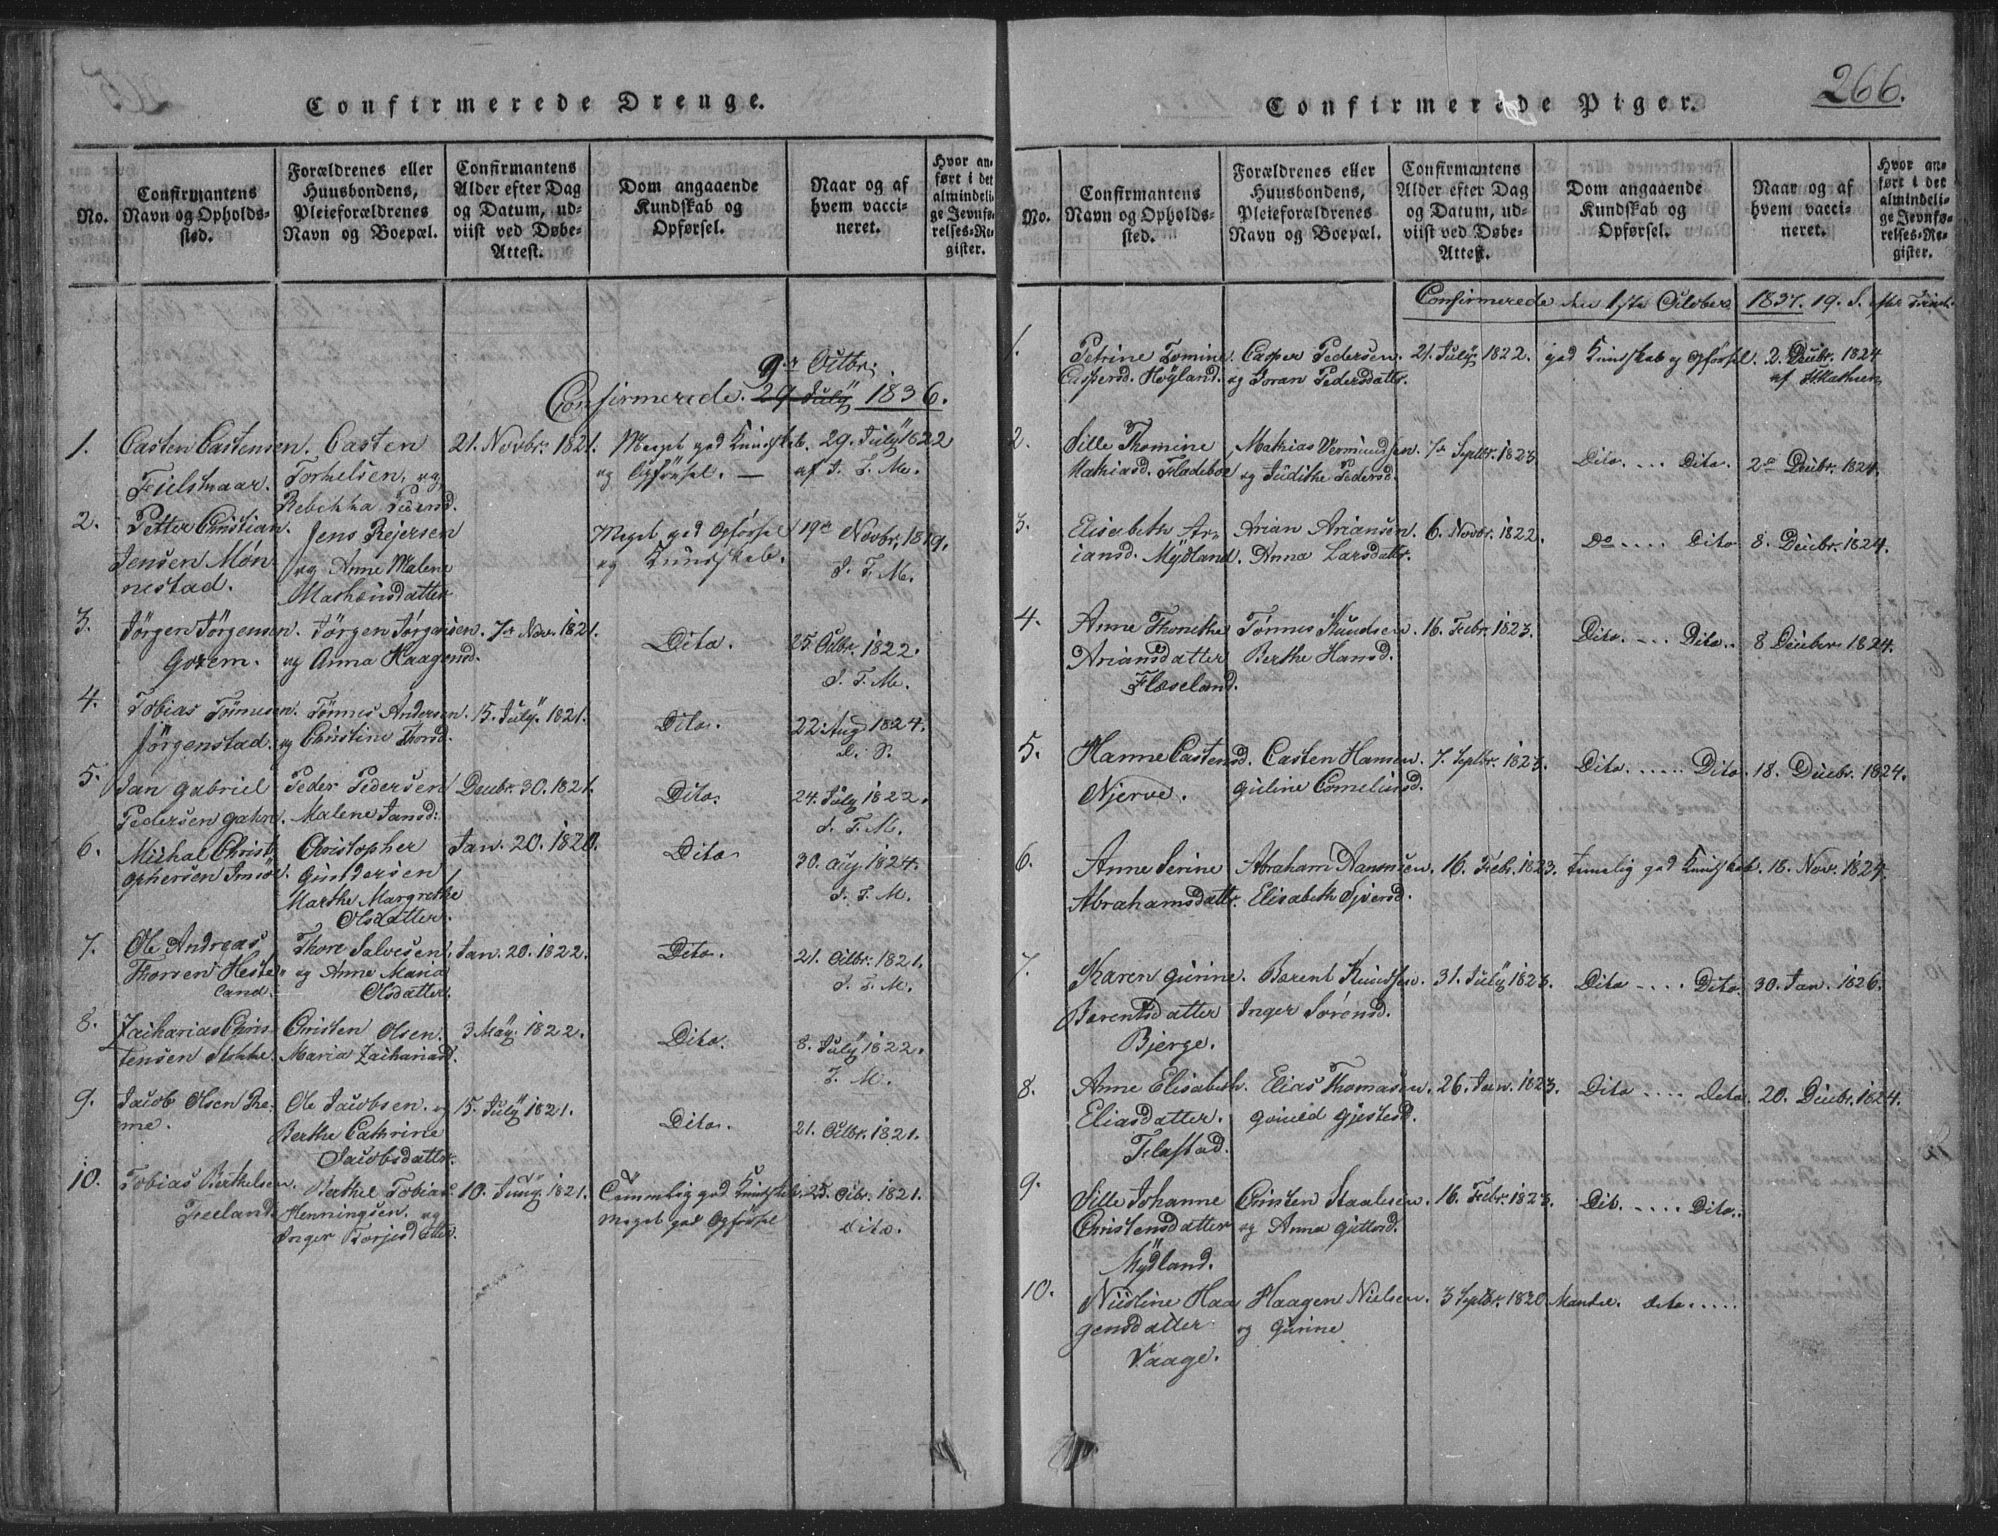 Confirmerede Drenge.
No.
Confirmantens
Navn og Opholds-
sted.
Forældrenes eller
Huusbondens,
Pleieforældrenes
Navn og Boepæl.
Confirmantens
Alder efter Dag
og Datum, ud-
viist ved Døbe-
Attest.
Dom angaaende
Kundskab og
Opførsel.
Naar og af
hvem vacci-
neret.
Hvor an-
ført i det
almindeli-
ge Jevnfø-
relses-Re-
gister.
9de Octbr.
Confirmerede. 29 July 1836.
1.
Casten Castensen.
Casten
Torkelsen, og
21. Novbr. 1821.
Meget god Kundskab.
og Opførsel. —
29. July 1822
af J. F. M.
2.
Petter Christian.
Jensen Møn
nestad.
Jens Rejersen
og Anne Malene
Meget god Opførsel
og Kundskab.
19de Novbr. 1819.
J. F. M.
3.
Jørgen Jørgensen.
Jørgen Jørgensen.
og Anna Haagensd.
7de Nov. 1821.
Dito.
25. Octbr. 1822.
J. F. M.
4.
Tobias Tønnesen.
Jørgenstad.
Tønnes Andersen.
og Christine
15. July. 1821.
Dito.
22. Aug 1824.
5.
Jan Gabriel
Pedersen Gahn.
Peder Pedersen
Malene Jansd:
Decbr. 30. 1821.
Dito.
24. July 1822.
J. F. M.
6.
Michal Christ
ophersen Imsö.
Christopher
Gundersen
Marthe Margrethe
Olsdatter.
Jan. 20. 1820.
Dito
30. Aug 1824.
J. F. M.
7.
Ole Andreas
Thorsen Heste
land.
Thore Salvesen,
og Anne Maria
Olsdatter.
Jan. 20. 1822.
Dito.
21. Octbr. 1821.
J. F. M.
8.
Zacharias Chris-
tensen Stokke.
Christen Olsen.
Maria Zachariasd.
3 May. 1822.
Dito.
8. July 1822.
F. M.
9.
Jacob Olsen
Ole Jacobsen. og
Berthe Cathrine
Jacobsdatter.
15. July 1821.
Dito.
21. Octbr. 1821.
10.
Tobias Berthelsen.
Freeland.
Berthel Tobias
Henningsen. og
Inger Torjesdatter.
10. 1821.
god Kundskab.
Meget god Opførsel
25. Octbr. 1821.
dito.
266.
Confirmerede Piger.
No.
Confirmantens
Navn og Opholds-
sted.
Forældrenes eller
Huusbondens,
Pleieforældrenes
Navn og Boepæl.
Confirmantens
Alder efter Dag
og Datum, ud-
viist ved Døbe-
Attest.
Dom angaaende
Kundskab og
Opførsel.
Naar og af
hvem vacci-
neret.
Hvor an-
ført i det
almindeli-
ge Jevnfø-
relses-Re-
gister.
Confirmerede den 1ste October 1837. 19. S. efter Trinit.
1.
Petrine Tomine
Caspersd. Høyland.
Casper Pedersen.
og Goran Pedersdatter.
21. July 1822.
god Kundskab og Opførsel.
2. Decbr. 1824
2.
Sille Thomine
Mathiasd. Fladeboe
Mathias Vermundsen.
og Judithe Pedersd.
7de Septbr. 1823.
Dito. ... Dito.
2de Decbr. 1824.
3.
Elisabeth Ar-
iansd. Mydland.
Arian Ariansen.
Anna Larsdatter.
6. Novbr. 1822.
Do .... Dito
8. Decbr. 1824.
4.
Anne Thonethe
Ariansdatter
Flæseland.
Tønnes Knudsen.
Berthe Hansd.
16. Febr. 1823.
Dito. .... Dito.
8 Decbr. 1824.
5.
Hanne Castensd.
Njerve.
Casten Hansen.
Guline Corneliusd.
7. Septbr. 1823.
Dito. ..... Dito
18. Decbr. 1824.
6.
Anne Serine
Abrahamsdattr.
Abraham Aanonsen.
Elisabeth Sjversd.
16. Febr. 1823.
god Kundskab.
18. Nov. 1824.
7.
Karen Gurine.
Barentsdatter
Bjerge.
Bærent Knudsen.
Inger Sørensd.
31. July 1823.
Dito .... Dito.
30. Jan. 1826.
8.
Anne Elisabeth.
Eliasdatter.
Elias Thomasen.
Gunild Gjestesd.
26. Jan. 1823.
Dito .... Dito
20. Decbr. 1824.
9.
Sille Johanne
Christensdatter
Mydland.
Christen Staalesen.
og Anna
16. Febr. 1823.
Dit. .... Dito.
10.
Haa
gensdatter
Vaage.
Haagen Nielsen.
og Gurine
3 Septbr. 1820.
dito .....